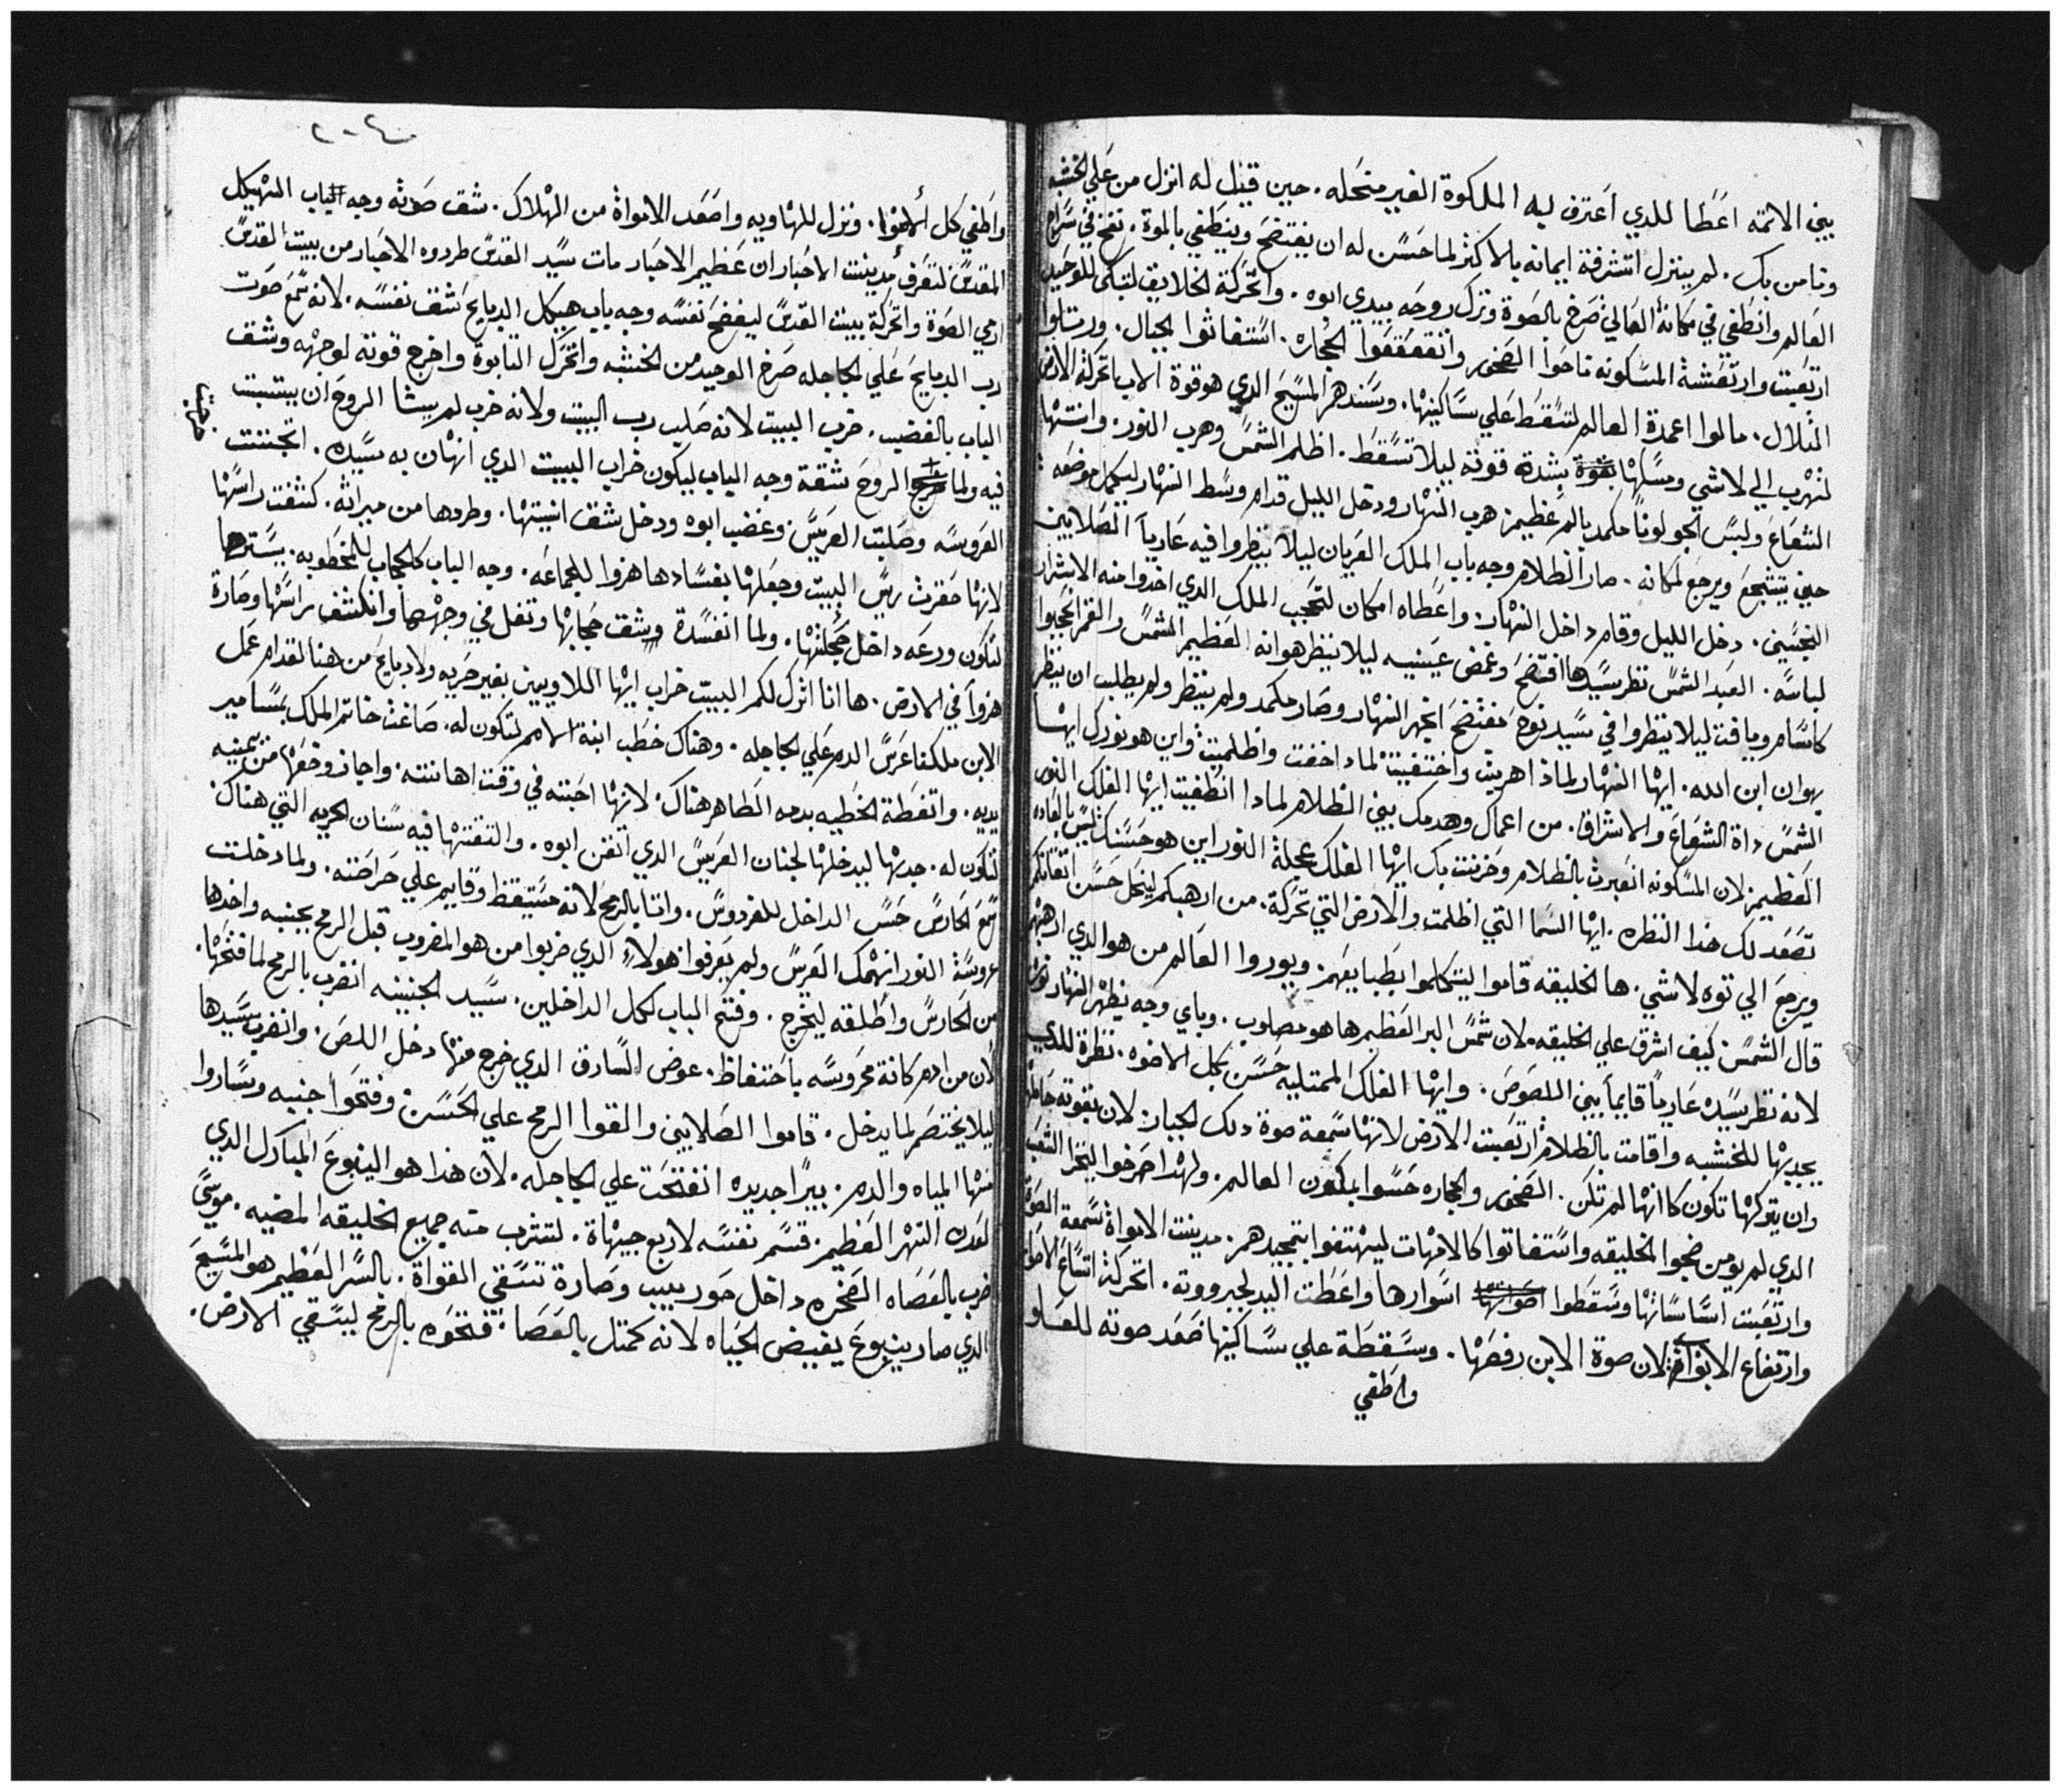 بيني الاتمه اعَطا للدي اَعترف ليه الملكوة الغير منحَله. حين قيل له انزل من عَلي الخشبه
ونامن بك. لم ينزل اتشرفة ايمانه بالاكثر لما حَسَن له ان يفتضحَ وينطَفي بالموة. نفخ في سَراج
العَالم وانطَفي في مكانهُ العَالي صَرخ بالصَوة وترك روحَه بيدي ابوه. واتحَركة الخلايق لتبكي للوحَيد
ارتعَبت وارتعَشة المسَكونه ناحَوا الصَخور واتقعَقعَوا الحجاره. استغاثوا الجبال. وريتلوا
التلال. مالوا اعمدة العالم لتسَقطَ عَلي سَاكنيهْا. وسَندهم المسَيحَ الدي هو قوة الاب اتحَركة الارض
لتهْرب الي لاشي ومسَكهْا بشدة قوته ليلا تسَقطَ. اظلم الشمسَ وهرب النور. وانتهْا
الشعَاعَ ولبسَ الجو لوناً مكمد بالم عَظيم. هرب النهْار ودخل الليل قدام وسَط النهْار ليكمل موضعَه
حيني يتشجعَ ويرجعَ لمكانه. صار الظلام وجه باب الملك العَريان ليلا ينظرَوا فيه عَارياً الصَلابين
النجسَين. دخل الليل وقام داخل النهْار واعَطاه امكان لتحَجب الملك الدي اخدوا منه الاشرار
لباسَه. العَبد الشمسَ نظر سَيدها افتضحَ وغمض عَينيه ليلا ينظر هو انه العَظيم الشمسَ والقمر احَجبوا
كاسَام ويافت ليلا ينظروا في سَيد نوحَ مفتضحَ اتجهر النهْار وصَار مكمد ولم ينظر ولم يطلب ان ينظر
يهوان ابن الله. ايهْا النهْار لماذا هربت واختفيت لماذا خفت واظلمت واين هو نورك ايهْا
الشمسَ داة الشعَاعَ والاشراق. من اعماك وهدمك بيني الظلام لمادا انطَفيت ايهْا الفلك النور
العَظيم. لان المسَكونه انعَبرت بالظلام وحَزنت بك ايهْا الفلك عَجلة النور اين هو حَسَنك ليسَ بالعَاده
تصَعَد لك هذا النظره. ايهْا السَما التي اظلمت والارض التي تحَركة. من ارهبكم لينحَل حَسَن اتقانكم
ويرجعَ الي توه لاشي. ها الخليقه قاموا ليتكلموا بطَبايعَهم. ويوروا العَالم من هو الدي ارهبهْم
قال الشمسَ كيف اشرق علي الخليقه. لان شمسَ البر العَظيم ها هو مصلوب. وباي وجه يظهْر النهْار نوره
لانه نظر سَيده عَارياً قايماً بيني اللصَوصَ. وايهْا الفلك الممتليه حَسَن بكل الاضوه. نظرة للدي
يجديهْا للخشبه واقامت بالظلام ارتعَبت الارض لانهْا سَمعَة صوة دلك الجبار. لان بقوته حَاملهْا
وان يتركهْا تكون كاانهْا لم تكن. الصَخور والحجاره حَسَوا بمكون العالم. ولهْذا صَرخوا ليتخزا الشعَب
الدي لم يومن ضجوا الخليقه واسَتغاتوا كالامهْات ليهْتفوا بتمجيدهم. مدينت الامواة سَمعَة الصَوة
وارتعَبت اسَاسَاتهْا وسَقطَوا اسَوارها واعَطَت اليد لجبرووته. اتحَركة اتسَاعَ الاموات
وارتفاع الابواب لان صوة الابن رفصَهْا. وسَقطَة علي سَاكنيها صَعَد صوته للعَلو
واطَفي
٢٠٤
واَطفي كل الاضوا. ونزل للهْاويه واصَعَد الامواة من الهْلاك. شق صَوته وجه الباب الهْيكل
المقدسَ لتعَرف مدينت الاحَبار ان عَظيم الاحَبار مات سَيد القدسَ طردوه الاحَبار من بيت القدسَ
ارمي الصَوة واتحَركة بيت القدسَ ليفضحَ نفسَه وجه باب هيكل الدبايحَ شق نفسَه. لانه سَمعَ صَوت
رب الدبايحَ عَلي الجاجله صَرخ الوحيد من الخشبه واتحَرك التابوة واخرج قوته لوجهْه وشق
الباب بالغضب. خرب البيت لانه صَلب رب البيت ولانه خرب لم يشا الروحَ ان يتبت
خرجت
فيه ولما الروحَ شقة وجه الباب ليكون خراب البيت الدي انهْان به سَيده. اتجننت
العَروسَه وصَلبت العَريسَ وغضب ابوه ودخل شق انيتهْا. وطردها من ميراته. كشفت راسَهْا
لانهْا حَقرت ربسَ البيت وجعَلهْا بفسَادها هزوا للجماعَه. وجه الباب كالحجاب للمخطَوبه. يسَترها
لتكون ودرعَه داخل حَجلتهْا. ولما انفسَدة شق حجابهْا وتفل في وجههْا وانكشف راسَهْا وصَارة
هزواً في الارض. ها انا اترك لكم البيت خراب ايهْا اللاويين بغير حَريه ولا دبايحَ من هنا لقدام عَمل
الابن ملكفا عَرسَ الدم عَلي الجاجله. وهناك خطَب ابنة الامم لتكون له. صَاغت خاتم الملك بمسَامير
يديه. واتغطَة الخطَيه بدمه الطَاهر هناك. لانهْا احَبته في وقت اهانته. واجاز وضعَها من يمينيه
لتكون له. جدبهْا ليدخلهْا لجنان العَريسَ الدي اتقن ابوه. والتقتهْا فيه سَنان الحربه التي هناك.
سَمعَ الحَارسَ حَسَ الداخل للفردوسَ. واتا بالرمحَ لانه مسَتيقظ وقايم علي حَراصَته. ولما دخلت
عروسَة النور انهْمك العَرسَ ولم يعَرفوا هولاء الدي ضربوا من هو المضروب قبل الرمحَ بجنبه واخدها
من الحَارسَ واَطلقه ليخرج. وفتح الباب لكل الداخلين. سَيد الجنينه انضرب بالرمح لما فتحَهْا.
لان من ادم كانة محَروسَه باحَتفاظ. عوض السَارق الدي خرج منهْا دخل اللصَ. وانضرب سَيدها
ليلا يختصَم لما يدخل. قاموا الصَلابين والقوا الرمح علي الحَسَن. وفتحَوا جنبه وسَاروا
منهْا المياه والدم. بيراً جديده انفتحَت علي الجاجله. لان هذا هو الينبوعَ المبارك الدي
لعَدن النهْر العَظيم. قسَم نفسَه لاربع جيهْاة. لتشرب منه جميع الخليقه المضيه. موسَي
ضرب بالعَصَاه الصَخره داخل حَوريب وصَارة تسَقي القواة. بالسَر العَظيم هو المسَيحَ
الدي صار ينبوعَ يفيض الحَياه لانه كمتل بالعَصَا. فتحَوه بالرمح ليسَقي الارض.